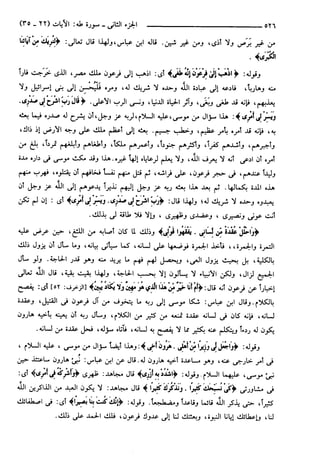 ٥٢٦ الجزء الثاني ـ سورة طه: الآيات (٢٢ ـ ٣٥)
من غير برص ولا أذى، ومن غير شين. قاله ابن عباس، ولهذا قال تعالى: ﴿لنريك من آياتنا
الكبرى﴾.
وقوله: ﴿اذهب إلى فرعون إنه طغى﴾ أي: اذهب إلى فرعون ملك مصر، الذي خرجت فاراً
منه وهارباً، فادعه إلى عبادة الله وحده لا شريك له، ومره فليحسن إلى بني إسرائيل ولا
يعذبهم، فإنه قد طغى وبغى، وآثر الحياة الدنيا، ونسي الرب الأعلى. ﴿قال رب اشرح لي صدري.
ويسر لي أمري﴾: هذا سؤال من موسى، عليه السلام، لربه عز وجل، أن يشرح له صدره فيما بعثه
به، فإنه قد أمره بأمر عظيم، وخطب جسيم. بعثه إلى أعظم ملك على وجه الأرض إذ ذاك،
وأجبرهم، وأشدهم كفراً، وأكثرهم جنوداً، وأعمرهم ملكاً، وأطغاهم وأبلغهم تمرداً، بلغ من
أمره أن ادعى أنه لا يعرف الله، ولا يعلم لرعاياه إلهاً غيره. هذا وقد مكث موسى في داره مدة
وليداً عندهم، في حجر فرعون، على فراشه، ثم قتل منهم نفساً فخافهم أن يقتلوه، فهرب منهم
هذه المدة بكمالها. ثم بعد هذا بعثه ربه عز وجل إليهم نذيراً يدعوهم إلى الله عز وجل أن
يعبدوه وحده لا شريك له، ولهذا قال: ﴿رب اشرح لي صدري. ويسر لي أمري﴾ أي: إن لم تكن
أنت عوني ونصيري، وعضدي وظهيري، وإلا فلا طاقة لي بذلك.
﴿واحلل عقدة من لساني. يفقهوا قولي﴾ وذلك لما كان أصابه من اللثغ، حين عرض عليه
التمرة والجمرة، فأخذ الجمرة فوضعها على لسانه، كما سيأتي بيانه، وما سأل أن يزول ذلك
بالكلية، بل بحيث يزول العي، ويحصل لهم فهم ما يريد منه وهو قدر الحاجة. ولو سأل
الجميع لزال، ولكن الأنبياء لا يسألون إلا بحسب الحاجة، ولهذا بقيت بقية، قال الله تعالى
إخباراً عن فرعون أنه قال: ﴿أم أنا خير من هذا الذي هو مهين ولا يكاد يبين﴾ [الزخرف: ٥٢] أي: يفصح
بالكلام. وقال ابن عباس: شكا موسى إلى ربه ما يتخوف من آل فرعون في القتيل، وعقدة
لسانه، فإنه كان في لسانه عقدة تمنعه من كثير من الكلام، وسأل ربه أن يعينه بأخيه هارون
يكون له ردءاً ويتكلم عنه بكثير مما لا يفصح به لسانه، فآتاه سؤله، فحل عقدة من لسانه.
وقوله: ﴿واجعل لي وزيراً من أهلي. هرون أخي﴾: وهذا أيضاً سؤال من موسى، عليه السلام،
في أمر خارجي عنه، وهو مساعدة أخيه هارون له. قال عن ابن عباس: نبئ هارون ساعتئذ حين
نبئ موسى، عليهما السلام. وقوله: ﴿اشدد به أزري﴾ قال مجاهد: ظهري ﴿وأشركه في أمري﴾ أي:
في مشاورتي ﴿كي نسبحك كثيراً. ونذكرك كثيراً﴾ قال مجاهد: لا يكون العبد من الذاكرين الله
كثيراً، حتى يذكر الله قائماً وقاعداً ومضطجعاً. وقوله: ﴿إنك كنت بنا بصيراً﴾ أي: في اصطفائك
لنا، وإعطائك إيانا النبوة، وبعثتك لنا إلى عدوك فرعون، فلك الحمد على ذلك.